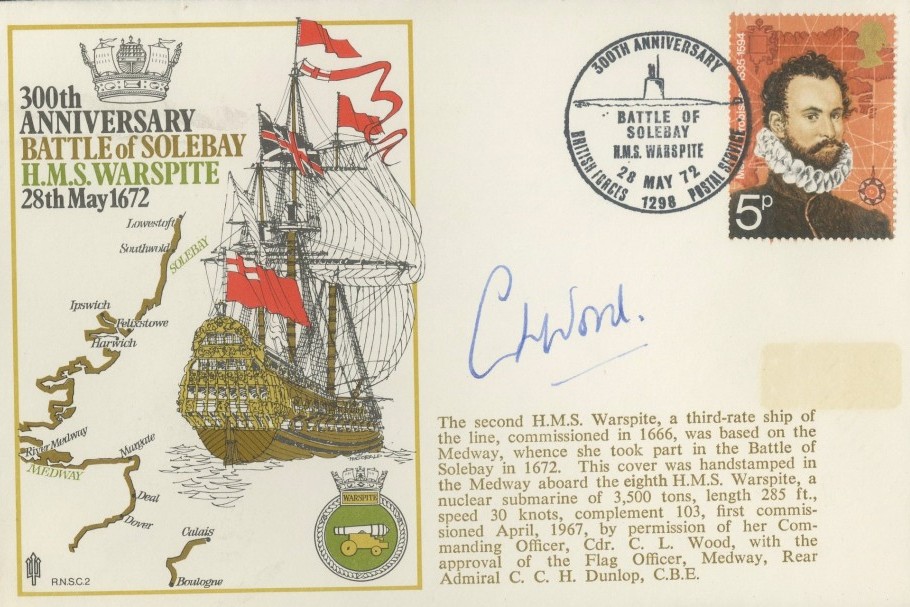 300th
ANNIVERSARY
BATTLE of SOLEBAY
H.M.S. WARSPITE
28th May 1672
Lowestoft
Southwold
SOLEBAY
Ipswich
Felixstowe
Harwich
River Medway
MEDWAY
Margate
Deal
Dover
Calais
Boulogne
R.N.S.C.2
WARSPITE
300TH ANNIVERSARY
BATTLE OF
SOLEBAY
H.M.S. WARSPITE
28 MAY 72
BRITISH FORCES 1298 POSTAL SERVICE
1535-1594
5p
C L Wood.
The second H.M.S. Warspite, a third-rate ship of
the line, commissioned in 1666, was based on the
Medway, whence she took part in the Battle of
Solebay in 1672. This cover was handstamped in
the Medway aboard the eighth H.M.S. Warspite, a
nuclear submarine of 3,500 tons, length 285 ft.,
speed 30 knots, complement 103, first commis-
sioned April, 1967, by permission of her Com-
manding Officer, Cdr. C. L. Wood, with the
approval of the Flag Officer, Medway, Rear
Admiral C. C. H. Dunlop, C.B.E.